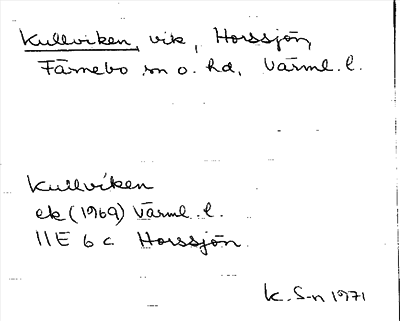 Kullviken, vik, Horssjön,
Färnebo sn o. hd, Värml. l.
Kullviken
ek (1969) Värml. l.
11E 6c Horssjön
K. S-n 1971